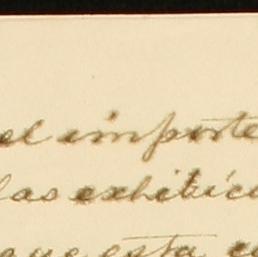 el importe
las exhibici
que esta